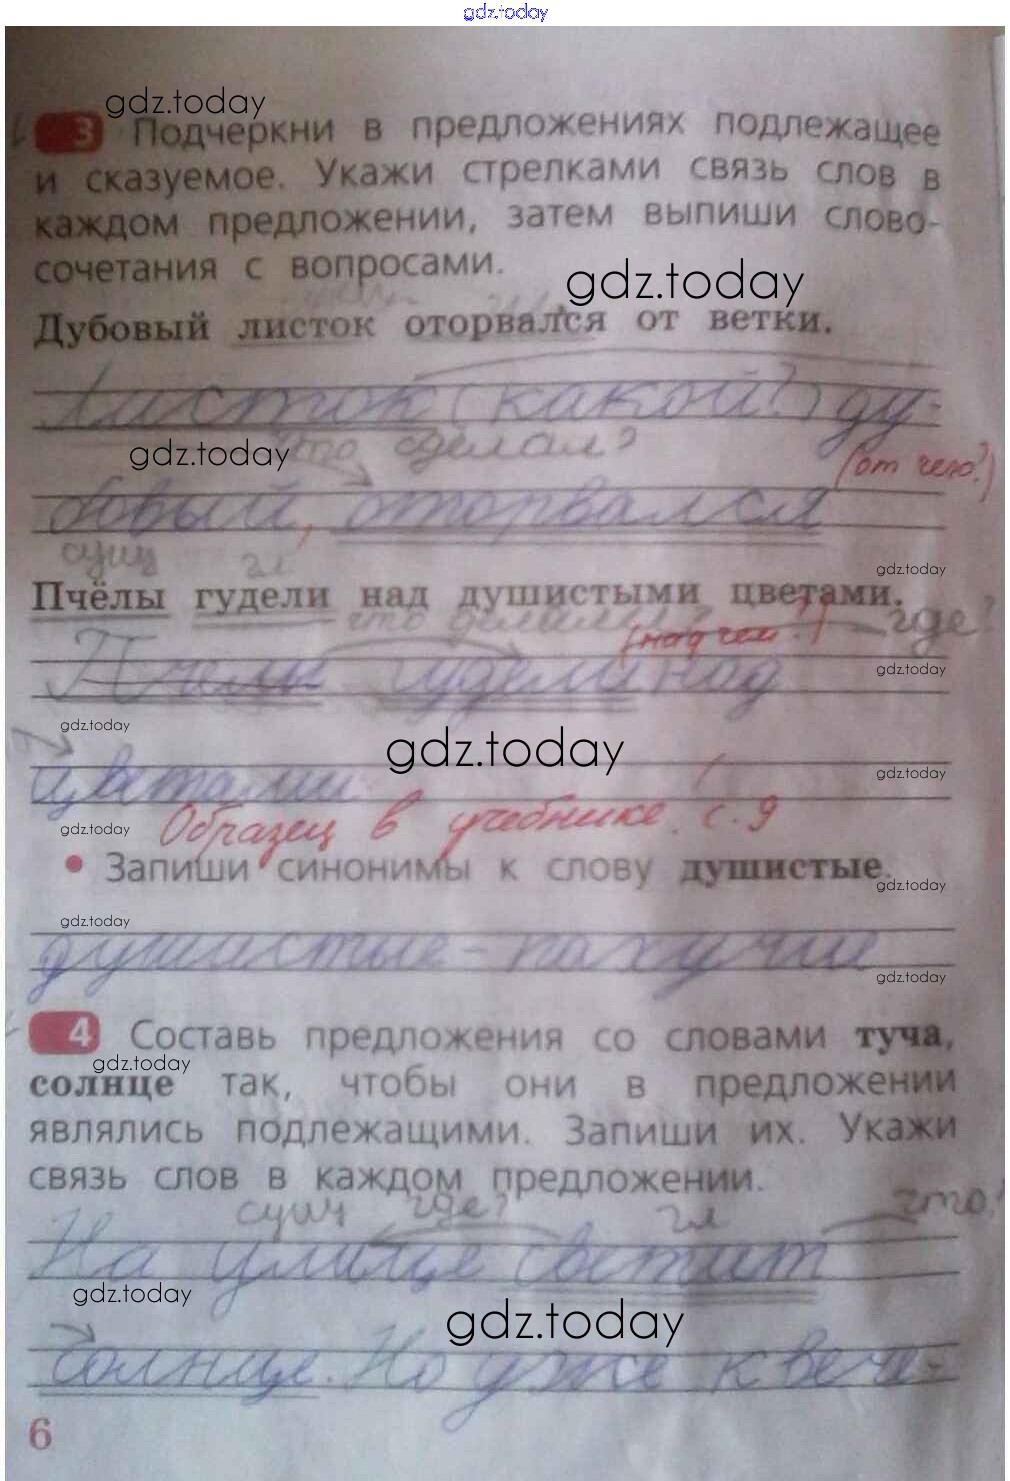 gdz.today
gdz.today
3 Подчеркни в предложениях подлежащее
и сказуемое. Укажи стрелками связь слов в
каждом предложении, затем выпиши слово-
сочетания с вопросами.
gdz.today
Дубовый листок оторвался от ветки.
Листок (какой?) ду-
gdz.today
что сделал?
(от чего?)
бовый, оторвался
сущ гл
gdz.today
Пчёлы гудели над душистыми цветами.
что делали? где?
(над чем?)
Пчёлы гудели над
gdz.today
gdz.today
gdz.today
цветами.
gdz.today
Образец в учебнике с. 9
gdz.today
• Запиши синонимы к слову душистые.
gdz.today
gdz.today
душистые - пахучие
gdz.today
4 Составь предложения со словами туча,
gdz.today
солнце так, чтобы они в предложении
являлись подлежащими. Запиши их. Укажи
связь слов в каждом предложении.
сущ где? гл что?
На улице светит
gdz.today
gdz.today
солнце. Но уже к вече-
6